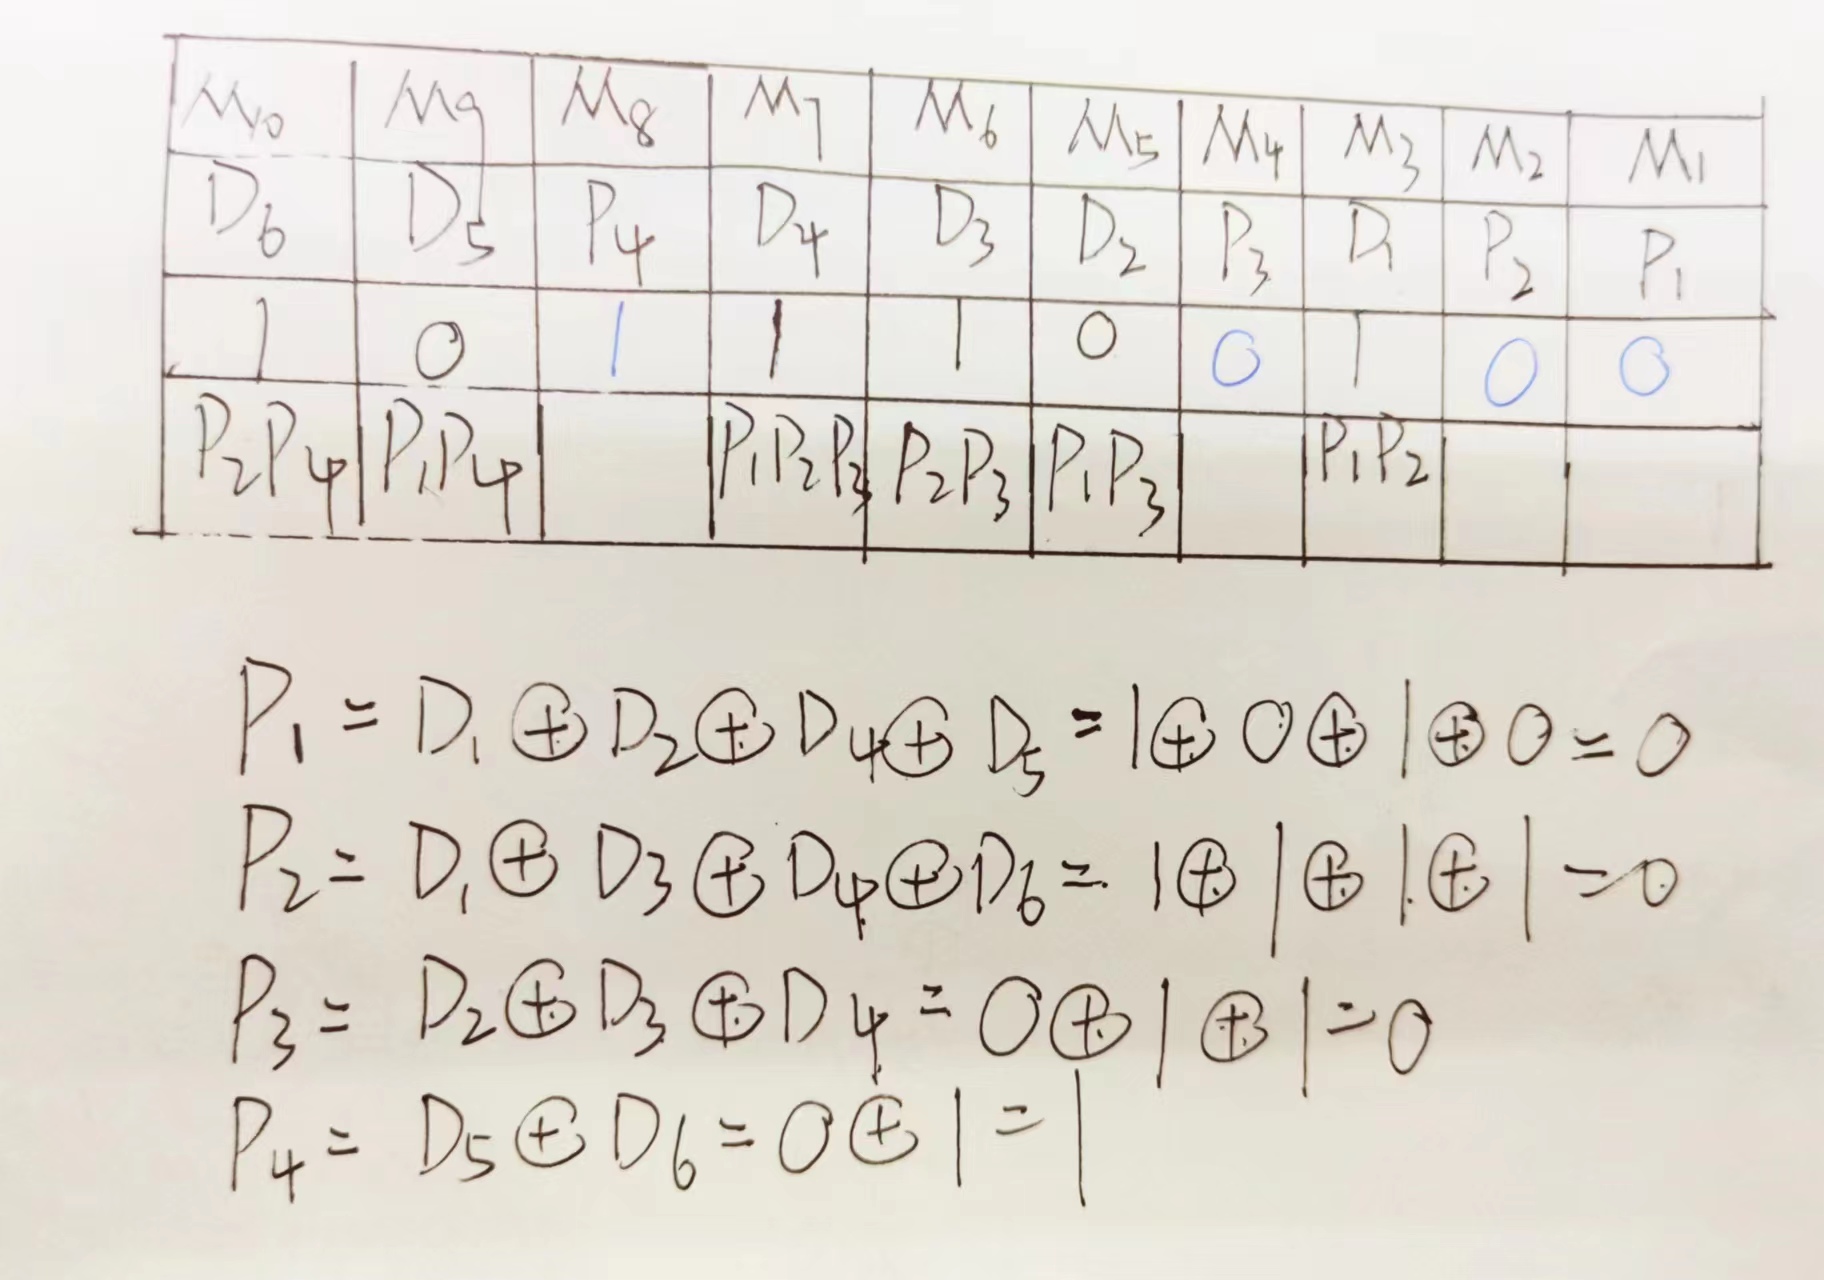 M₁₀ M₉ M₈ M₇ M₆ M₅ M₄ M₃ M₂ M₁
D₆ D₅ P₄ D₄ D₃ D₂ P₃ D₁ P₂ P₁
1 0 1 1 1 0 0 1 0 0
P₂P₄ P₁P₄ P₁P₂P₃ P₂P₃ P₁P₃ P₁P₂
P₁ = D₁ ⊕ D₂ ⊕ D₄ ⊕ D₅ = 1 ⊕ 0 ⊕ 1 ⊕ 0 = 0
P₂ = D₁ ⊕ D₃ ⊕ D₄ ⊕ D₆ = 1 ⊕ 1 ⊕ 1 ⊕ 1 = 0
P₃ = D₂ ⊕ D₃ ⊕ D₄ = 0 ⊕ 1 ⊕ 1 = 0
P₄ = D₅ ⊕ D₆ = 0 ⊕ 1 = 1